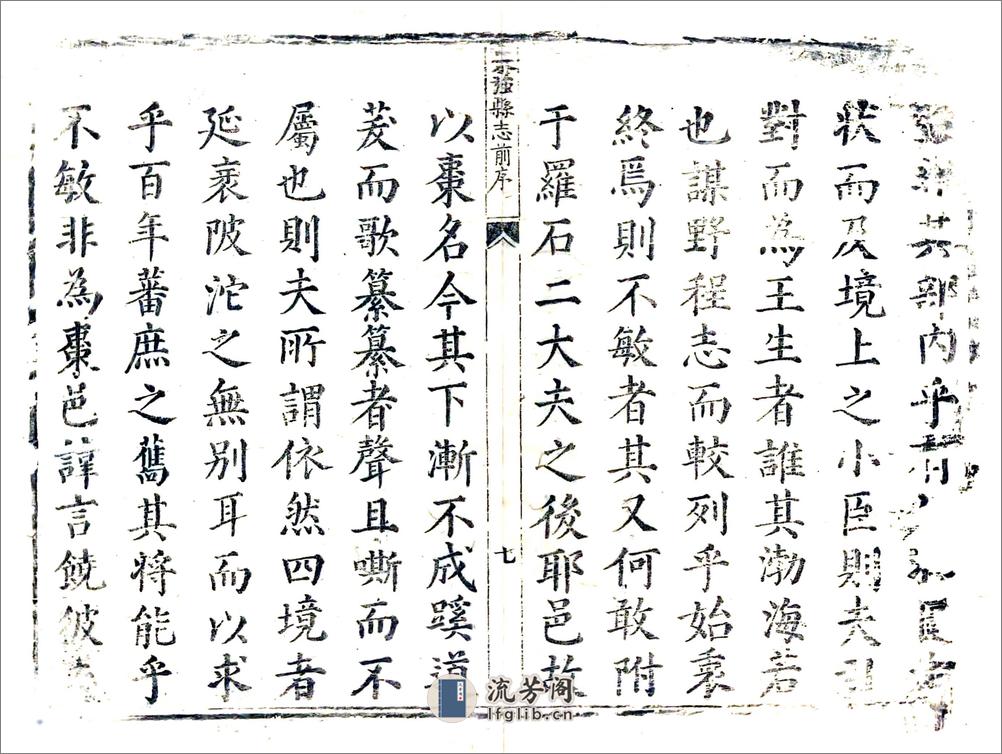 其部內乎
狀而及境上之小臣則夫引
對而為王生者誰其渤海若
也謀野程志而較列乎始裒
終焉則不敏者其又何敢附
于羅石二大夫之後耶邑故
棗強縣志前序
七
以棗名今其下漸不成蹊道
菱而歌纂纂者聲且嘶而不
屬也則夫所謂依然四境者
延袤陂沱之無別耳而以求
乎百年蕃庶之舊其將能乎
不敏非為棗邑諱言饒彼
流芳阁
lfglib.cn